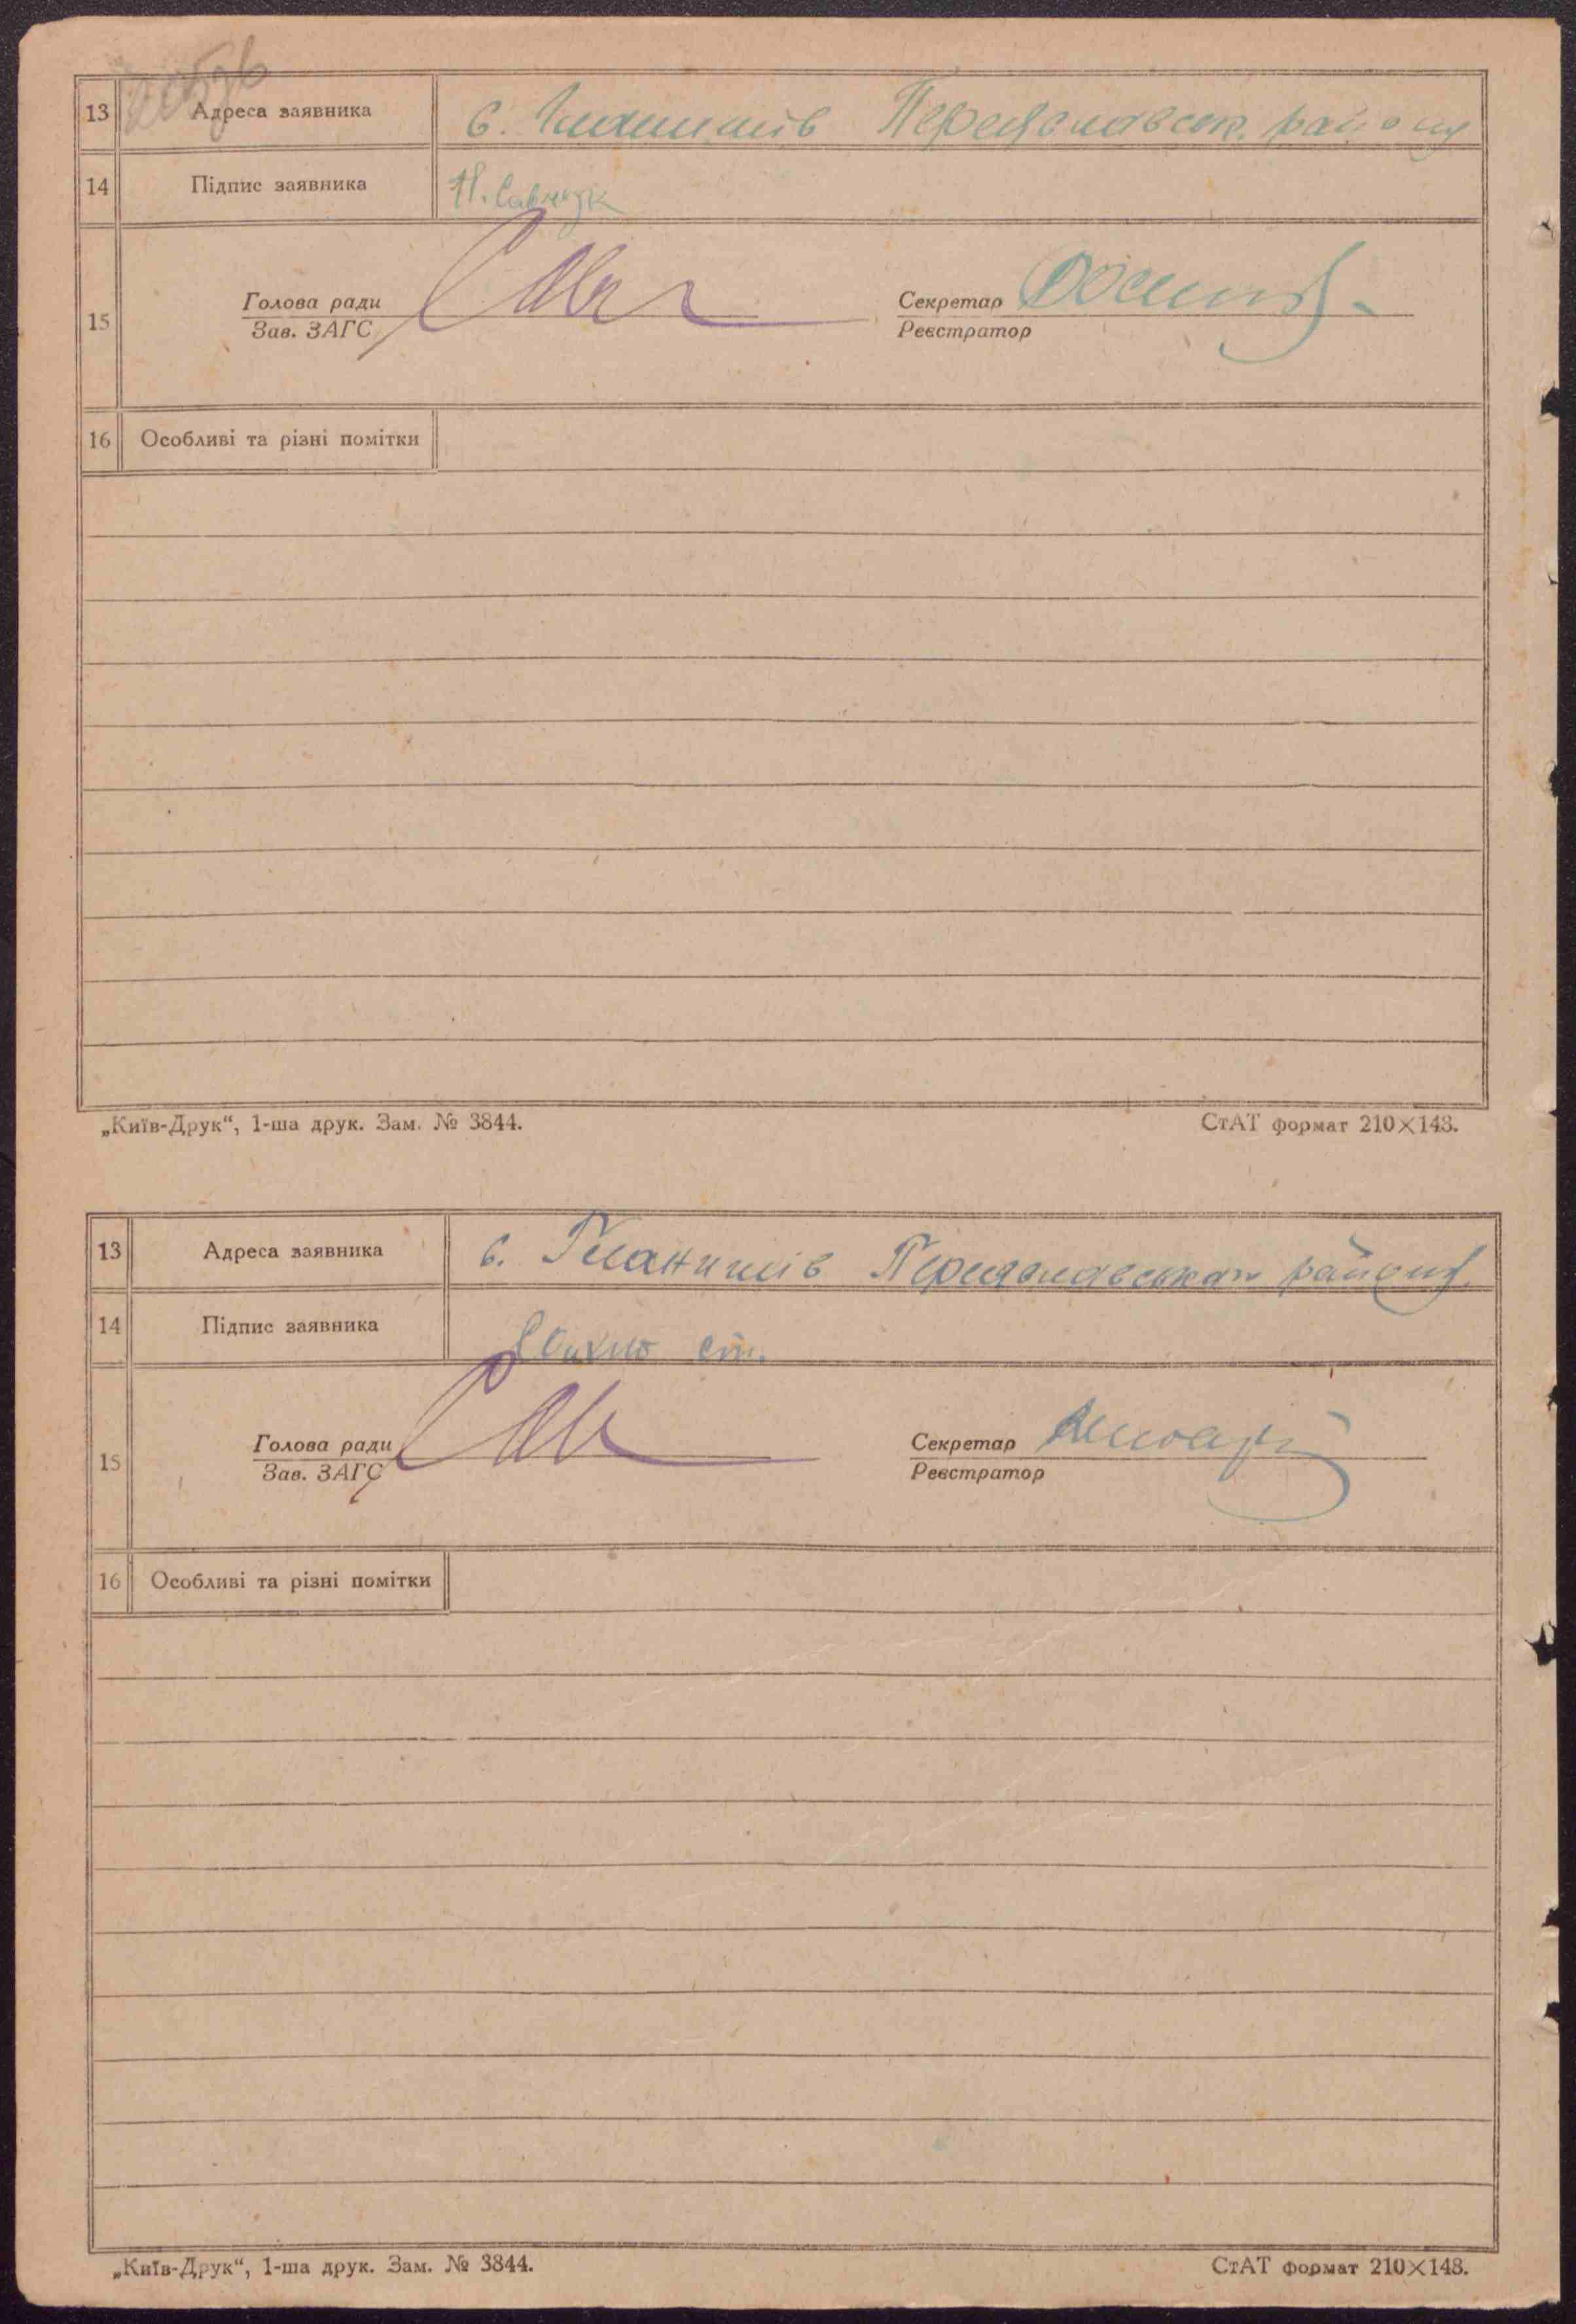 13 Адреса заявника с. Гланишів Переяславськ. району
14 Підпис заявника Н. Савчук
15 Голова ради Секретар
Зав. ЗАГС Реєстратор
16 Особливі та різні помітки
„Київ-Друк“, 1-ша друк. Зам. № 3844. СтАТ формат 210×148.
13 Адреса заявника с. Гланишів Переяславськ. району
14 Підпис заявника ст.
15 Голова ради Секретар
Зав. ЗАГС Реєстратор
16 Особливі та різні помітки
„Київ-Друк“, 1-ша друк. Зам. № 3844. СтАТ формат 210×148.